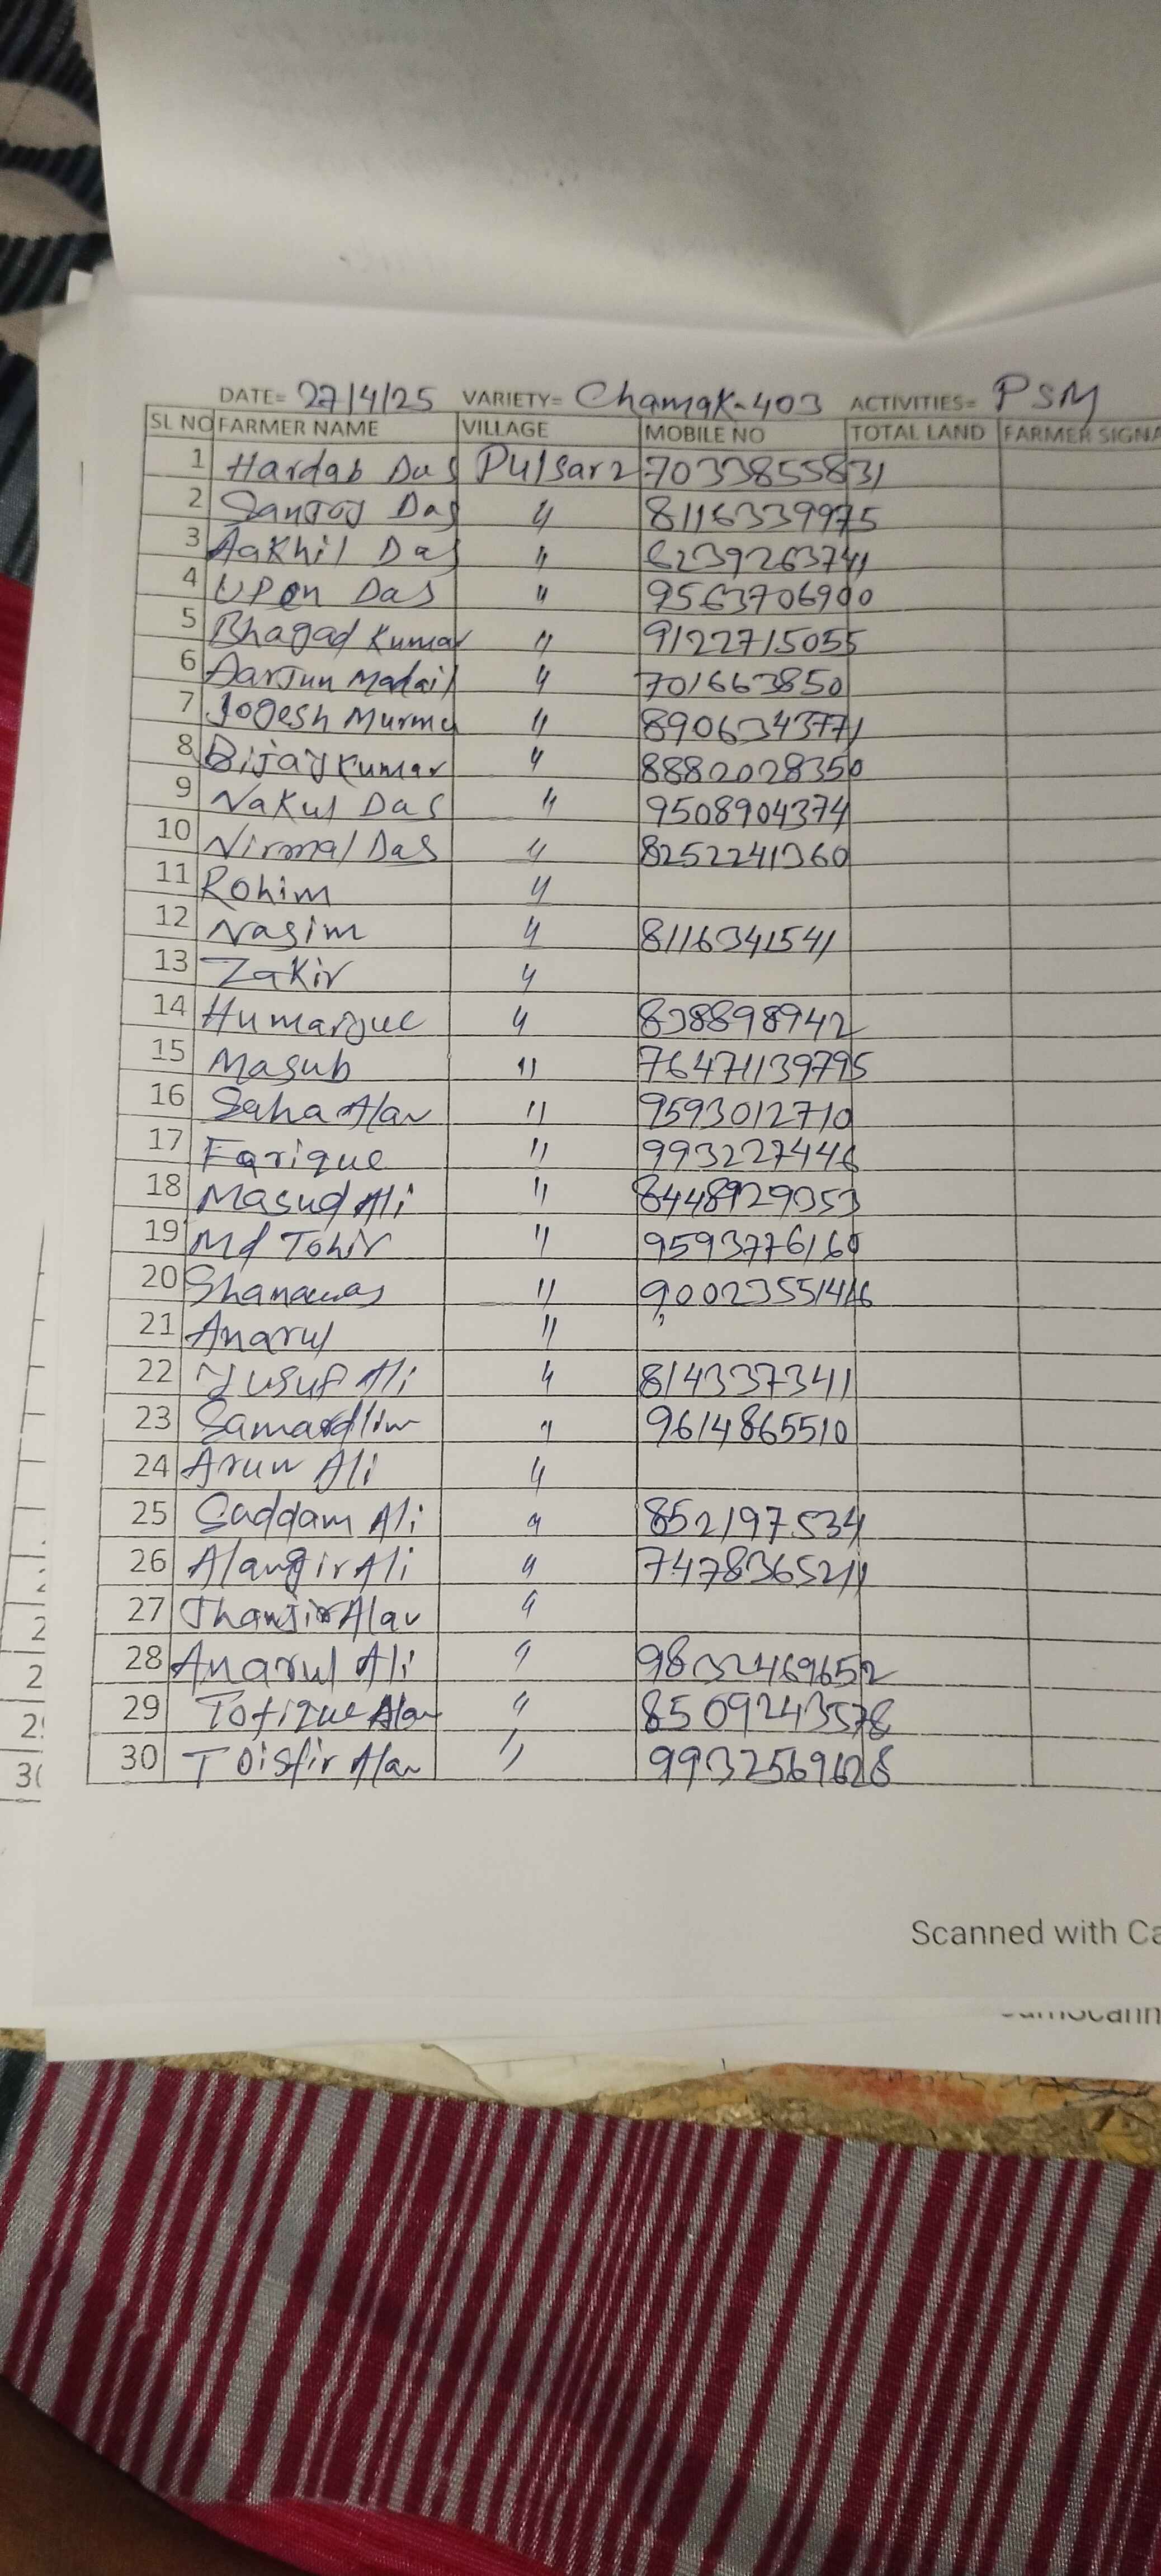 DATE= 27/4/25 VARIETY= Chamak-403 ACTIVITIES= PSM
SL NO FARMER NAME VILLAGE MOBILE NO TOTAL LAND FARMER SIGNA
1 Hardab Das Pulsara 7033855831
2 Santos Das 〃 8116339975
3 Aakhil Das 〃 6239263741
4 Upen Das 〃 9563706900
5 Bhagad Kumar 〃 9122715055
6 Aarjun Madail 〃 701663850
7 Jogesh Murmu 〃 8906343771
8 Bijay Kumar 〃 8882028350
9 Nakul Das 〃 9508904374
10 Nirmal Das 〃 8252241360
11 Rohim 〃
12 Nasim 〃 8116341541
13 Zakir 〃
14 〃 838898942
15 Masub 〃 76471139795
16 Saha Alam 〃 9593012710
17 Farique 〃 993227446
18 Masud Ali 〃 8448929353
19 Md Tohir 〃 9593776160
20 Shanawas 〃
21 Anarul 〃
22 Yusuf Ali 〃 814337341
23 〃 9614865510
24 Arun Ali 〃
25 Saddam Ali 〃 852197534
26 Alamgir Ali 〃 7478365211
27 〃
28 Anarul Ali 〃 9832469652
29 Tofique Alam 〃 8509243578
30 〃 9932569628
Scanned with Ca
2
2
2
3